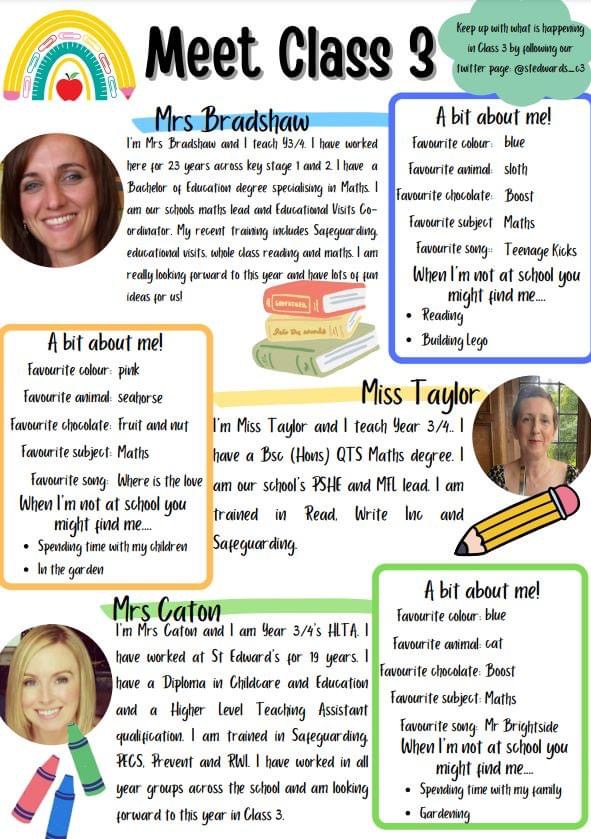 Meet Class 3
Keep up with what is happening
in Class 3 by following our
twitter page: @stedwards_c3
Mrs Bradshaw
I'm Mrs Bradshaw and I teach Y3/4. I have worked
here for 23 years across key stage 1 and 2. I have a
Bachelor of Education degree specialising in Maths. I
am our schools maths lead and Educational Visits Co-
ordinator. My recent training includes Safeguarding,
educational visits, whole class reading and maths. I am
really looking forward to this year and have lots of fun
ideas for us!
A bit about me!
Favourite colour: blue
Favourite animal: sloth
Favourite chocolate: Boost
Favourite subject Maths
Favourite song:: Teenage Kicks
When I'm not at school you
might find me....
• Reading
• Building Lego
A bit about me!
Favourite colour: pink
Favourite animal: seahorse
Favourite chocolate: Fruit and nut
Favourite subject: Maths
Favourite song: Where is the love
When I'm not at school you
might find me....
• Spending time with my children
• In the garden
Miss Taylor
I'm Miss Taylor and I teach Year 3/4. I
have a Bsc (Hons) QTS Maths degree. I
am our school's PSHE and MFL lead. I am
trained in Read, Write Inc and
Safeguarding.
Mrs Caton
I'm Mrs Caton and I am Year 3/4's HLTA. I
have worked at St Edward's for 19 years. I
have a Diploma in Childcare and Education
and a Higher Level Teaching Assistant
qualification. I am trained in Safeguarding,
PECS, Prevent and RWI. I have worked in all
year groups across the school and am looking
forward to this year in Class 3.
A bit about me!
Favourite colour: blue
Favourite animal: cat
Favourite chocolate: Boost
Favourite subject: Maths
Favourite song: Mr Brightside
When I'm not at school you
might find me....
• Spending time with my family
• Gardening